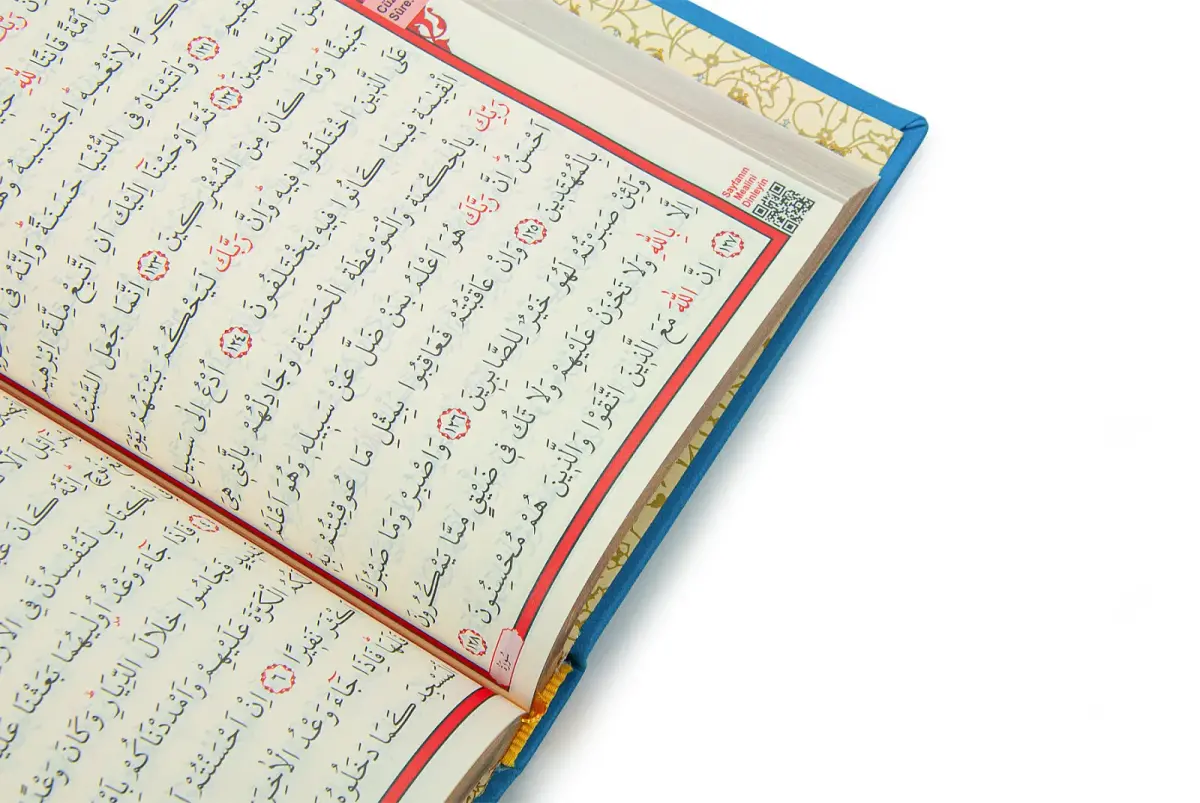 Sûre
Sayfanın
Mealini
Dinleyin
اُمَّةً قَانِتًا لِلّٰهِ
لِاَنْعُمِهِ اِجْتَبٰيهُ
١٢١ وَاٰتَيْنَاهُ فِي الدُّنْيَا حَسَنَةً وَاِنَّهُ فِي
الصَّالِحِينَ ١٢٢ ثُمَّ اَوْحَيْنَا اِلَيْكَ اَنِ اتَّبِعْ مِلَّةَ اِبْرٰهِيمَ
حَنِيفًا وَمَا كَانَ مِنَ الْمُشْرِكِينَ ١٢٣ اِنَّمَا جُعِلَ السَّبْتُ
عَلَى الَّذِينَ اخْتَلَفُوا فِيهِ وَاِنَّ رَبَّكَ لَيَحْكُمُ بَيْنَهُمْ يَوْمَ
الْقِيٰمَةِ فِيمَا كَانُوا فِيهِ يَخْتَلِفُونَ ١٢٤ اُدْعُ اِلٰى سَبِيلِ
رَبِّكَ بِالْحِكْمَةِ وَالْمَوْعِظَةِ الْحَسَنَةِ وَجَادِلْهُمْ بِالَّتِي هِيَ
اَحْسَنُ اِنَّ رَبَّكَ هُوَ اَعْلَمُ بِمَنْ ضَلَّ عَنْ سَبِيلِهِ وَهُوَ اَعْلَمُ
بِالْمُهْتَدِينَ ١٢٥ وَاِنْ عَاقَبْتُمْ فَعَاقِبُوا بِمِثْلِ مَا عُوقِبْتُمْ بِهِ
وَلَئِنْ صَبَرْتُمْ لَهُوَ خَيْرٌ لِلصَّابِرِينَ ١٢٦ وَاصْبِرْ وَمَا صَبْرُكَ
اِلَّا بِاللّٰهِ وَلَا تَحْزَنْ عَلَيْهِمْ وَلَا تَكُ فِي ضَيْقٍ مِمَّا يَمْكُرُونَ
١٢٧ اِنَّ اللّٰهَ مَعَ الَّذِينَ اتَّقَوْا وَالَّذِينَ هُمْ مُحْسِنُونَ ١٢٨
سُورَةُ
اِنَّهُ كَانَ
الْكِتَابِ لَتُفْسِدُنَّ فِي
فَاِذَا جَاءَ وَعْدُ اُولٰيهُمَا بَعَثْنَا
فَجَاسُوا خِلَالَ الدِّيَارِ وَكَانَ وَعْدًا
الْكَرَّةَ عَلَيْهِمْ وَاَمْدَدْنَاكُمْ
نَفِيرًا ٦ اِنْ اَحْسَنْتُمْ
فَاِذَا جَاءَ وَعْدُ الْاٰخِرَةِ
كَمَا دَخَلُوهُ